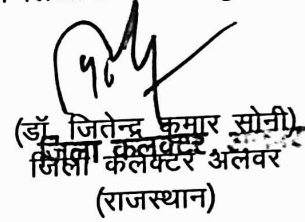 (डॉ. जितेन्द्र कुमार सोनी)
जिला कलक्टर
जिला कलेक्टर अलवर
(राजस्थान)